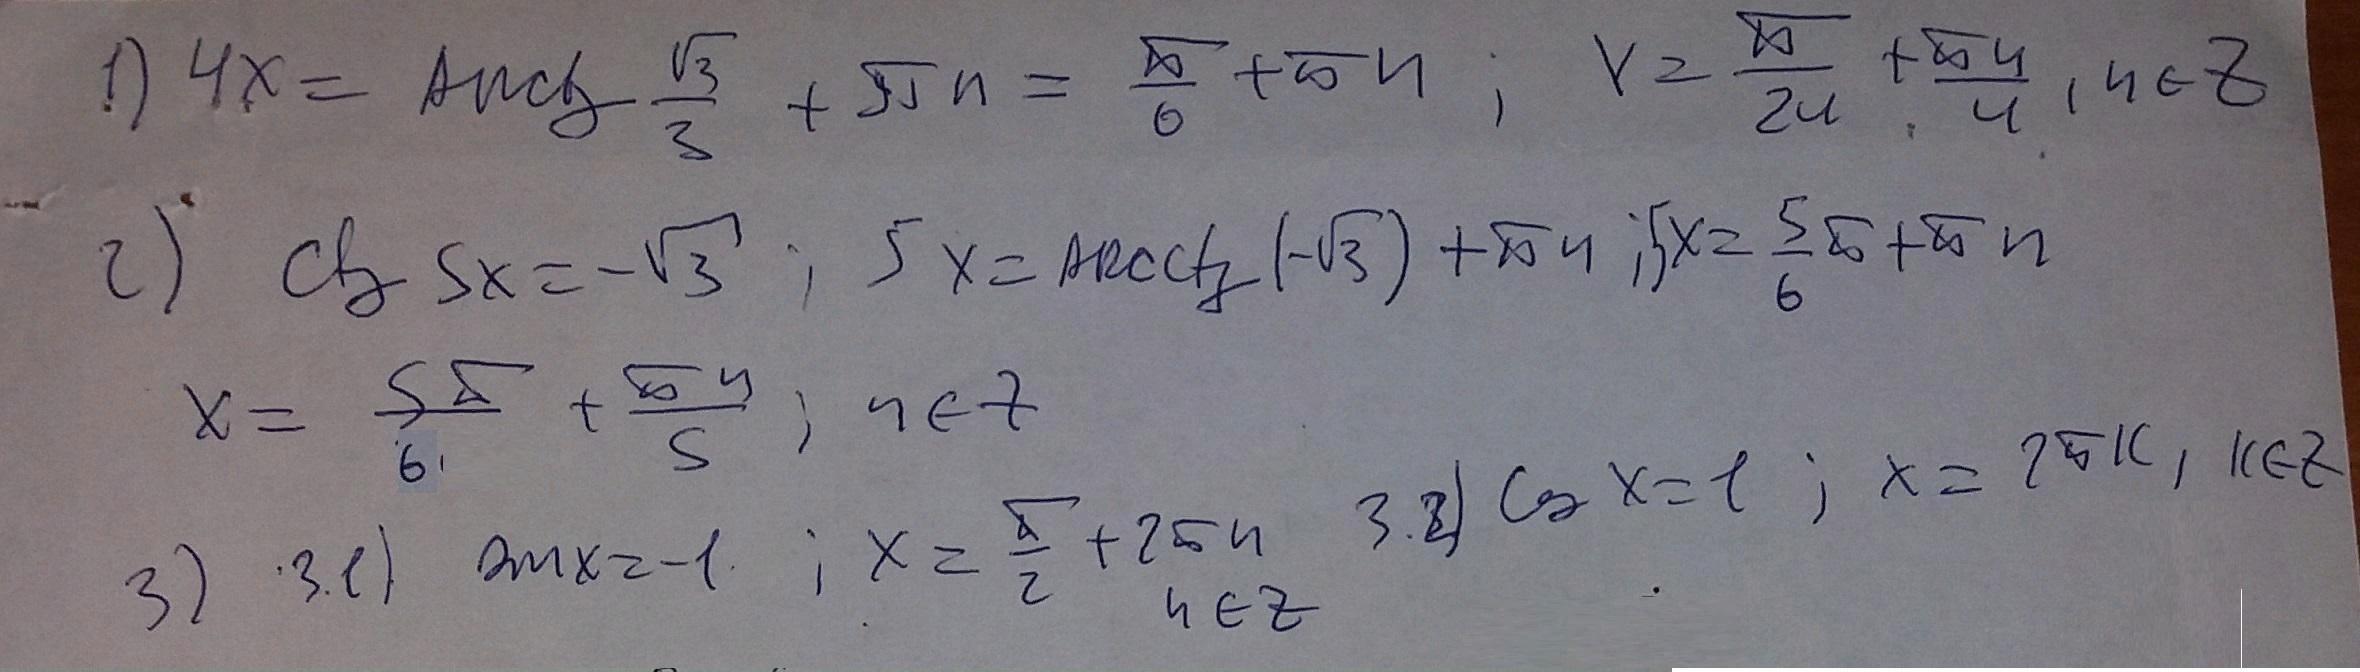 1) 4x = Arctg √3/3 + πn = π/6 + πn ; x = π/24 + πn/4 , n ∈ Z
2) Ctg 5x = -√3 ; 5x = ARCCtg (-√3) + πn ; 5x = 5/6 π + πn
x = 5π/6 + πn/5 ; n ∈ Z
3) 3.1) sin x = -1 ; x = π/2 + 2πn n ∈ Z 3.2) Cos x = 1 ; x = 2πK, K ∈ Z